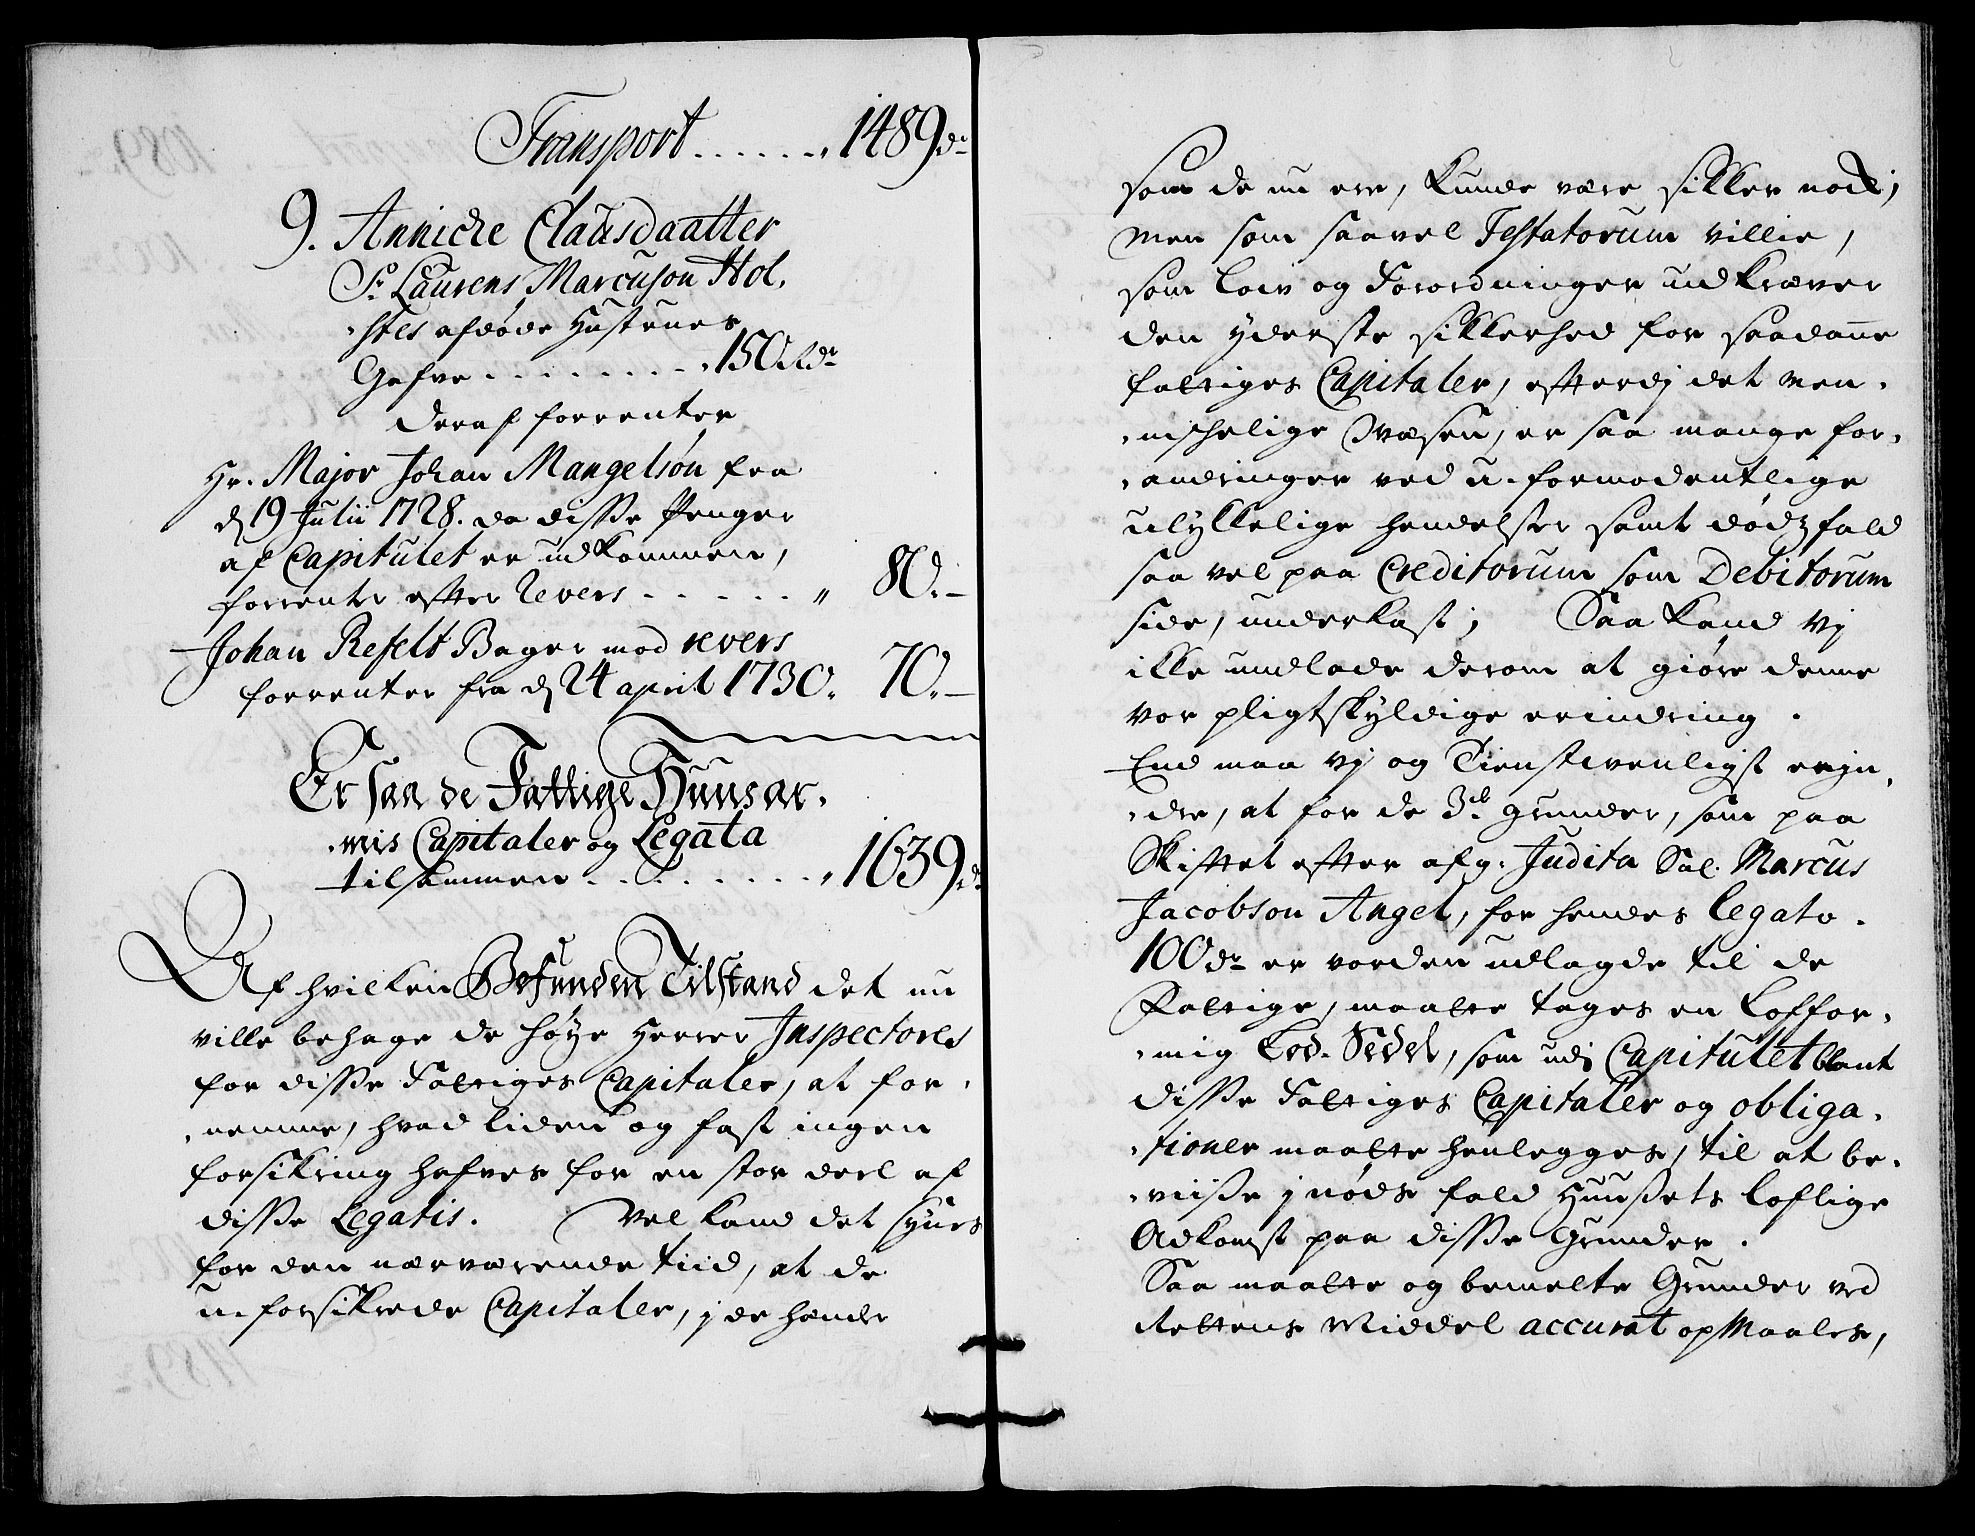 Transport . . . . . . „ 1489 dr
9. Annicke Clausdaatter
Sr. Laurens Marcuson Hol-
-stes afdøde Hustrues
Gafve . . . . . . . . „ 150 Rdr
deraf forrenter
Hr. Major Johan Mangelson fra
d. 19 Julii 1728. da disse Penger
af Capitulet er udkommen,
forrente efter Revers . . . . . „ 80.–
Johan Refelt Bager mod revers
forrenter fra d. 24 april 1730. 70.–
Er saa de Fattige Huusar-
-mis Capitaler og Legata
tilsammen . . . . . . . . „ 1639 dr
Af hvilken Befunden Tilstand det nu
ville behage de høye Herrer Inspectores
for disse Fattiges Capitaler, at for-
-nemme, hvad liden og fast ingen
forsikring hafves for en stor deel af
disse Legatis. Vel kand det synes
for den nærværende tiid, at de
u-forsikrede Capitaler, j de hænder
som de nu ere, kunde være sikker nock;
Men som saavel Testatorum villie,
som Low og Forordninger udkræver
den yderste sikkerhed for saadanne
fattiges Capitaler, efterdj det Men-
-nischelige Wæsen, er saa mange for-
-andringer ved u-formodentlige
ulykkelige hendelser samt dødsfald
saa vel paa Creditorum som Debitorum
side, underkast; Saa kand Vj
ikke undlade derom at giøre denne
vor pligtskyldige erindring.
End maa vj og Tienstvenligst erin-
-dre, at for de 3de grunder, som paa
Skiftet efter afg. Judita Sal. Marcus
Jacobson Angel, for hendes Legato
100 dr er vorden udlagde til de
Fattige, maatte tages en Loffor-
-mig Lod-Seddel, som udj Capitulet blant
disse Fattiges Capitaler og obliga-
-tioner maatte henlegges, til at be-
-viisse j nøds fald Huusets loflige
Adkomst paa disse Grunder.
Saa maatte og bemelte Grunder ved
Rettens Middel accurat opmaales,